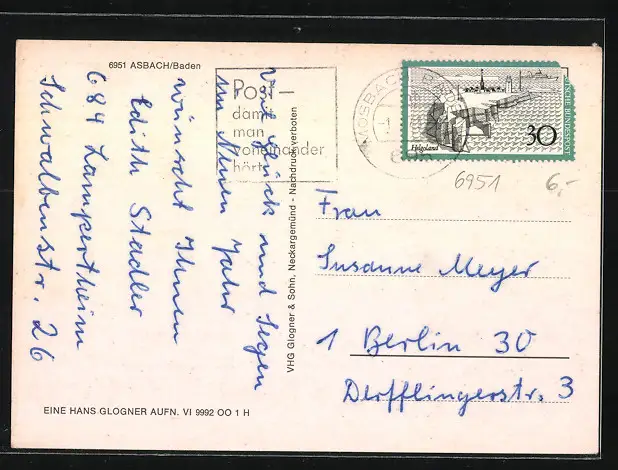 6951 ASBACH/Baden
Post –
damit
man
voneinander
hört
MOSBACH, BADEN
Helgoland
30
DEUTSCHE BUNDESPOST
6951
6,-
Viel Glück und Segen
im Neuen Jahr
wünscht Ihnen
Edith Stadler
684 Lampertheim
Schwalbenstr. 26
VHG Glogner & Sohn, Neckargemünd - Nachdruck verboten
Frau
Susanne Meyer
1 Berlin 30
Derfflingerstr. 3
EINE HANS GLOGNER AUFN. VI 9992 OO 1 H